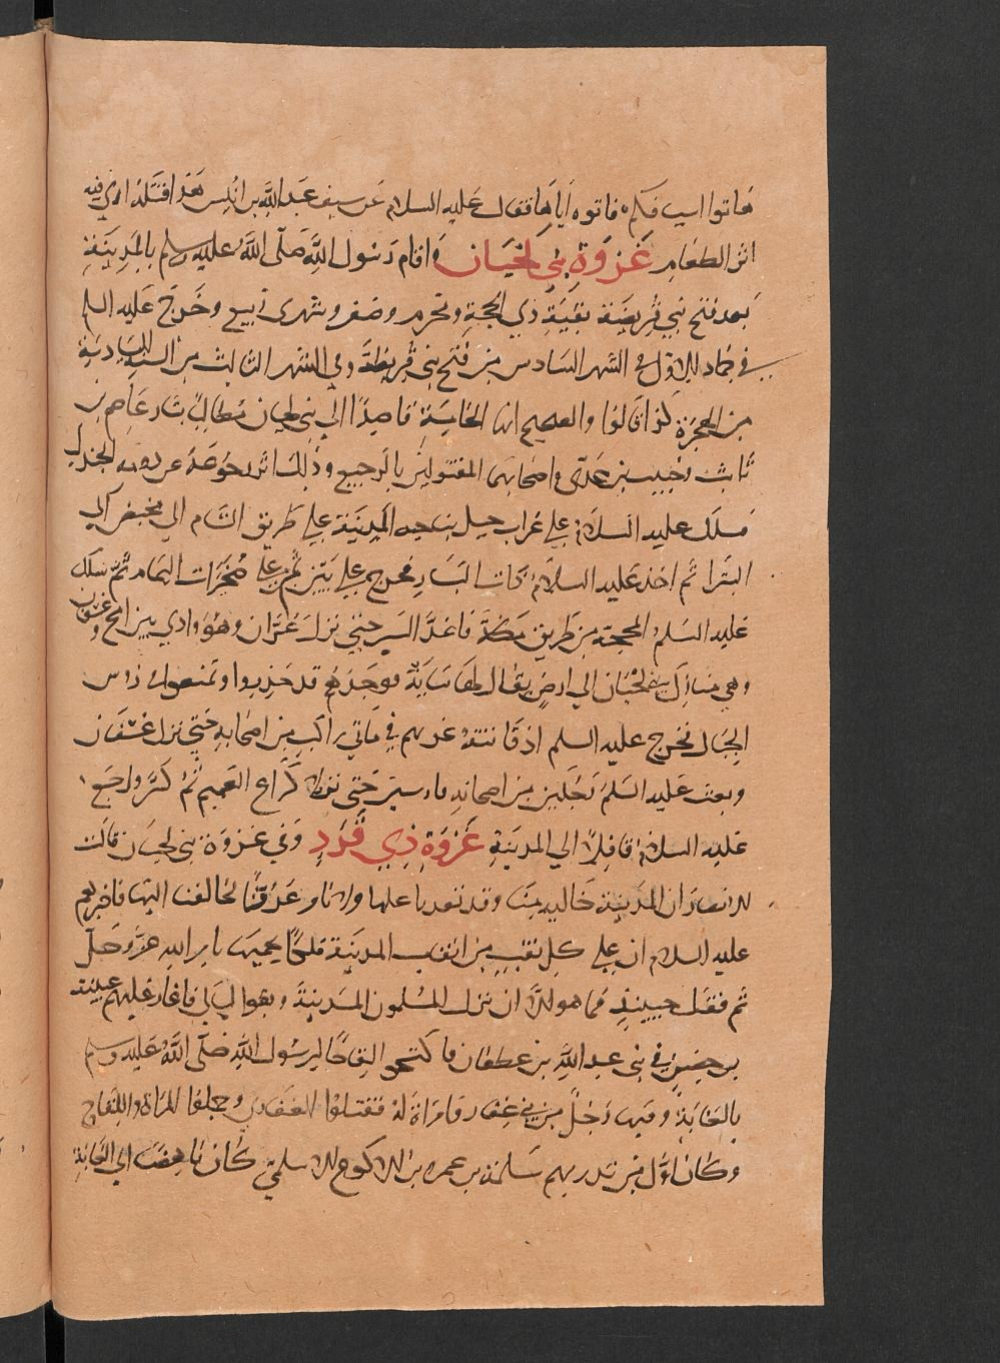 هاتوا اسيافكم فاتوه اياها فقال عليه السلام عن سيف عبد الله بن انيس هذا قتله اري فيه
اثر الطعام غزوة بني لحيان واقام رسول الله صلى الله عليه وسلم بالمدينة
بعد فتح بني قريضة بقية ذي الحجة ومحرم وصفر وشهري ربيع وخرج عليه السلم
في جماد الاول في الشهر السادس من فتح بني قريظة وفي الشهر الثالث من السنة السادسة
من الهجرة كذا قالوا والصحيح انها الخامسة قاصدًا الي بني لحيان مطالبًا بثار عاصم بن
ثابت وخبيب بن عدي واصحابهما المقتولين بالرجيع وذلك اثر رجوعه من دومة الجندل
فسلك عليه السلام علي غراب جبل بناحية المدينة علي طريق الشام الي مخيض الي
البترا ثم اخذ عليه السلام ذات اليسار فخرج علي يين ثم علي صخيرات اليمام ثم سلك
عليه السلم المحجة من طريق مكة فاغذ السير حتي نزل غران وهو وادي بين امج وعسفان
وهي منازل بني لحيان الي ارض يقال لها ساية فوجدهم قد حذروا وتمنعوا في رؤس
الجبال فخرج عليه السلم اذ فاتته غرتهم في مأتي راكب من اصحابه حتي نزل عسفان
وبعث عليه السلم رجلين من اصحابه فارسين حتي بلغا كراع الغميم ثم كر ورجع
عليه السلام قافلا الي المدينة غزوة ذي قرد وفي غزوة بني لحيان قالت
الانصار ان المدينة خالية منا وقد بعدنا عنها ولا نامن عدوًا يخالفنا اليها فاخبرهم
عليه السلام ان علي كل نقب من انقاب المدينة ملكًا يحميها بامر الله عز وجل
ثم قفل حينيذ فما هو الا ان نزل المسلمون المدينة وبقوا ليالي فاغار عليهم عيينة
بن حصن في بني عبد الله بن غطفان فاكتسحوا لقاحًا لرسول الله صلى الله عليه وسلم
بالغابة وفيها رجل من بني غفار وامراة له فقتلوا الغفاري وحملوا المراة واللقاح
وكان اول من نذر بهم سلمة بن عمرو بن الاكوع الاسلمي كان ناهضا الي الغابة